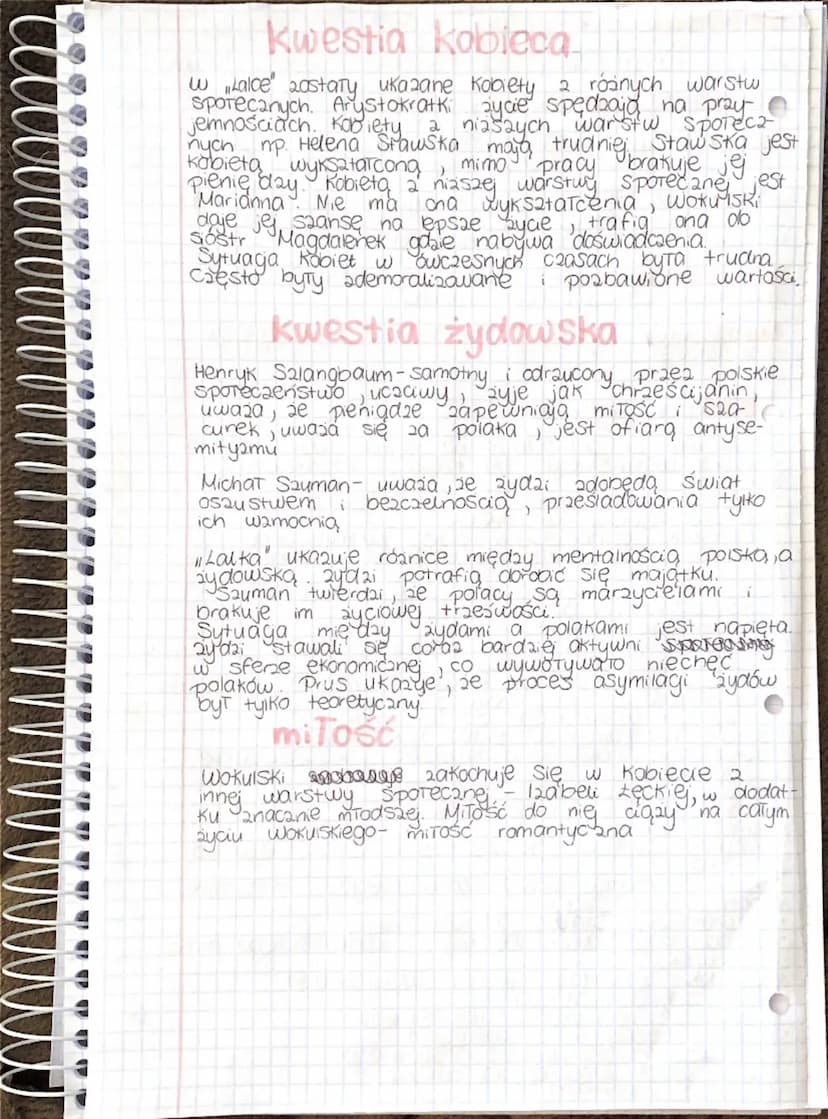 kwestia kobieca
W „Lalce" zostały ukazane kobiety z różnych warstw
społecznych. Arystokratki życie spędzają na przy-
jemnościach. Kobiety z niższych warstw społecz-
nych np. Helena Stawska mają trudniej. Stawska jest
kobietą wykształconą, mimo pracy brakuje jej
pieniędzy. Kobietą z niższej warstwy społecznej jest
Marianna. Nie ma ona wykształcenia, Wokulski
daje jej szansę na lepsze życie, trafia ona do
sióstr Magdalenek gdzie nabywa doświadczenia.
Sytuacja kobiet w ówczesnych czasach była trudna
często były zdemoralizowane i pozbawione wartości.
kwestia żydowska
Henryk Szlangbaum - samotny i odrzucony przez polskie
społeczeństwo, uczciwy, żyje jak chrześcijanin,
uważa, że pieniądze zapewniają miłość i sza-
cunek, uważa się za polaka, jest ofiarą antyse-
mityzmu
Michał Szuman - uważa, że żydzi zdobędą świat
oszustwem i bezczelnością, prześladowania tylko
ich wzmocnią
„Lalka" ukazuje różnice między mentalnością polską, a
żydowską. żydzi potrafią dorobić się majątku.
Szuman twierdzi, że polacy są marzycielami i
brakuje im życiowej trzeźwości.
Sytuacja między żydami a polakami jest napięta.
żydzi stawali się coraz bardziej aktywni
w sferze ekonomicznej, co wywoływało niechęć
polaków. Prus ukazuje, że proces asymilacji żydów
był tylko teoretyczny.
miłość
Wokulski zakochuje się w kobiecie z
innej warstwy społecznej - Izabeli Łęckiej, w dodat-
ku znacznie młodszej. Miłość do niej ciąży na całym
życiu Wokulskiego - miłość romantyczna